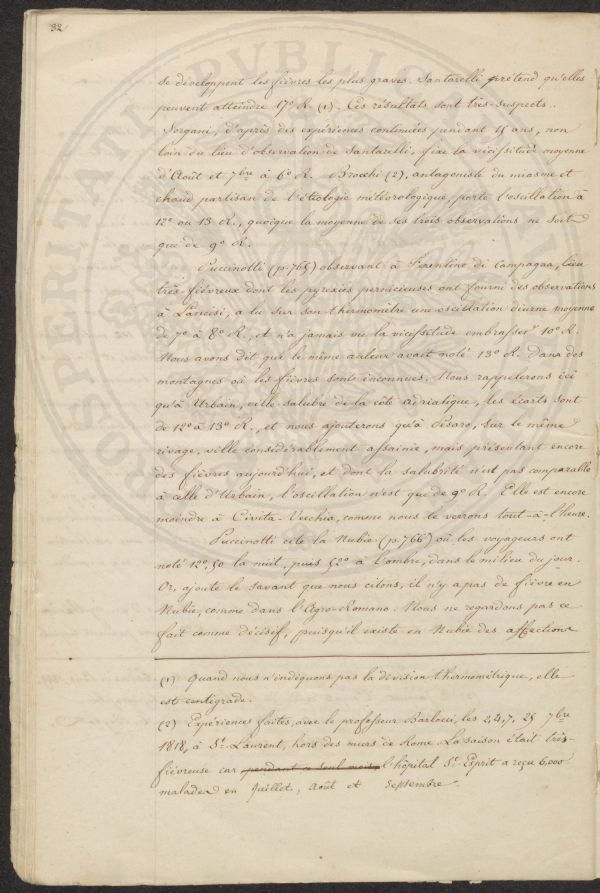 32
se développent les fièvres les plus graves. Santarelli prétend qu'elles
peuvent atteindre 17° R (1). Ces résultats sont très-suspects..
Sorgani, d'après des expériences continuées pendant 15 ans, non
loin du lieu d'observation de Santarelli, fixe la vicissitude moyenne
d'Août et 7bre à 6° R. Brocchi (2), antagoniste du miasme et
chaud partisan de l'étiologie météorologique, porte l'oscillation à
12° ou 13 R., quoique la moyenne de ses trois observations ne soit
que de 9° R.
Puccinotti (p.765) observant à Ferentino di Campagna, lieu
très fiévreux dont les pyrexies pernicieuses ont fourni des observations
à Lancisi, a lu sur son thermomètre une oscillation diurne moyenne
de 7° à 8° R., et n'a jamais vu la vicissitude embrasser 10° R.
Nous avons dit que le même auteur avait noté 13° R. dans des
montagnes où les fièvres sont inconnues. Nous rappelerons ici
qu'à Urbain, ville salubre de la côte adriatique, les écarts sont
de 12° à 13° R., et nous ajouterons qu'à Pésaro, sur le même
rivage, ville considérablement assainie, mais présentant encore
des fièvres aujourd'hui, et dont la salubrité n'est pas comparable
à celle d'Urbain, l'oscillation n'est que de 9° R. Elle est encore
moindre à Civita-Vecchia, comme nous le verrons tout-à-l'heure.
Puccinotti cite la Nubie (p.766) où les voyageurs ont
noté 12°,50 la nuit, puis 52° à l'ombre, dans le milieu du jour.
Or, ajoute le savant que nous citons, il n'y a pas de fièvre en
Nubie, comme dans l'Agro-Romano. Nous ne regardons pas ce
fait comme décisif, puisqu'il existe en Nubie des affections
(1) Quand nous n'indiquons pas la division thermométrique, elle
est centigrade.
(2) Expériences faites, avec le professeur Barlocci, les 2, 4, 7, 25 7bre
1818, à St. Laurent, hors des murs de Rome. La saison était très-
fiévreuse car pendant ce seul mois, l'hôpital St-Esprit a reçu 6,000
malades en Juillet, Août et Septembre.
PVBLICAE
PROSPERITATI